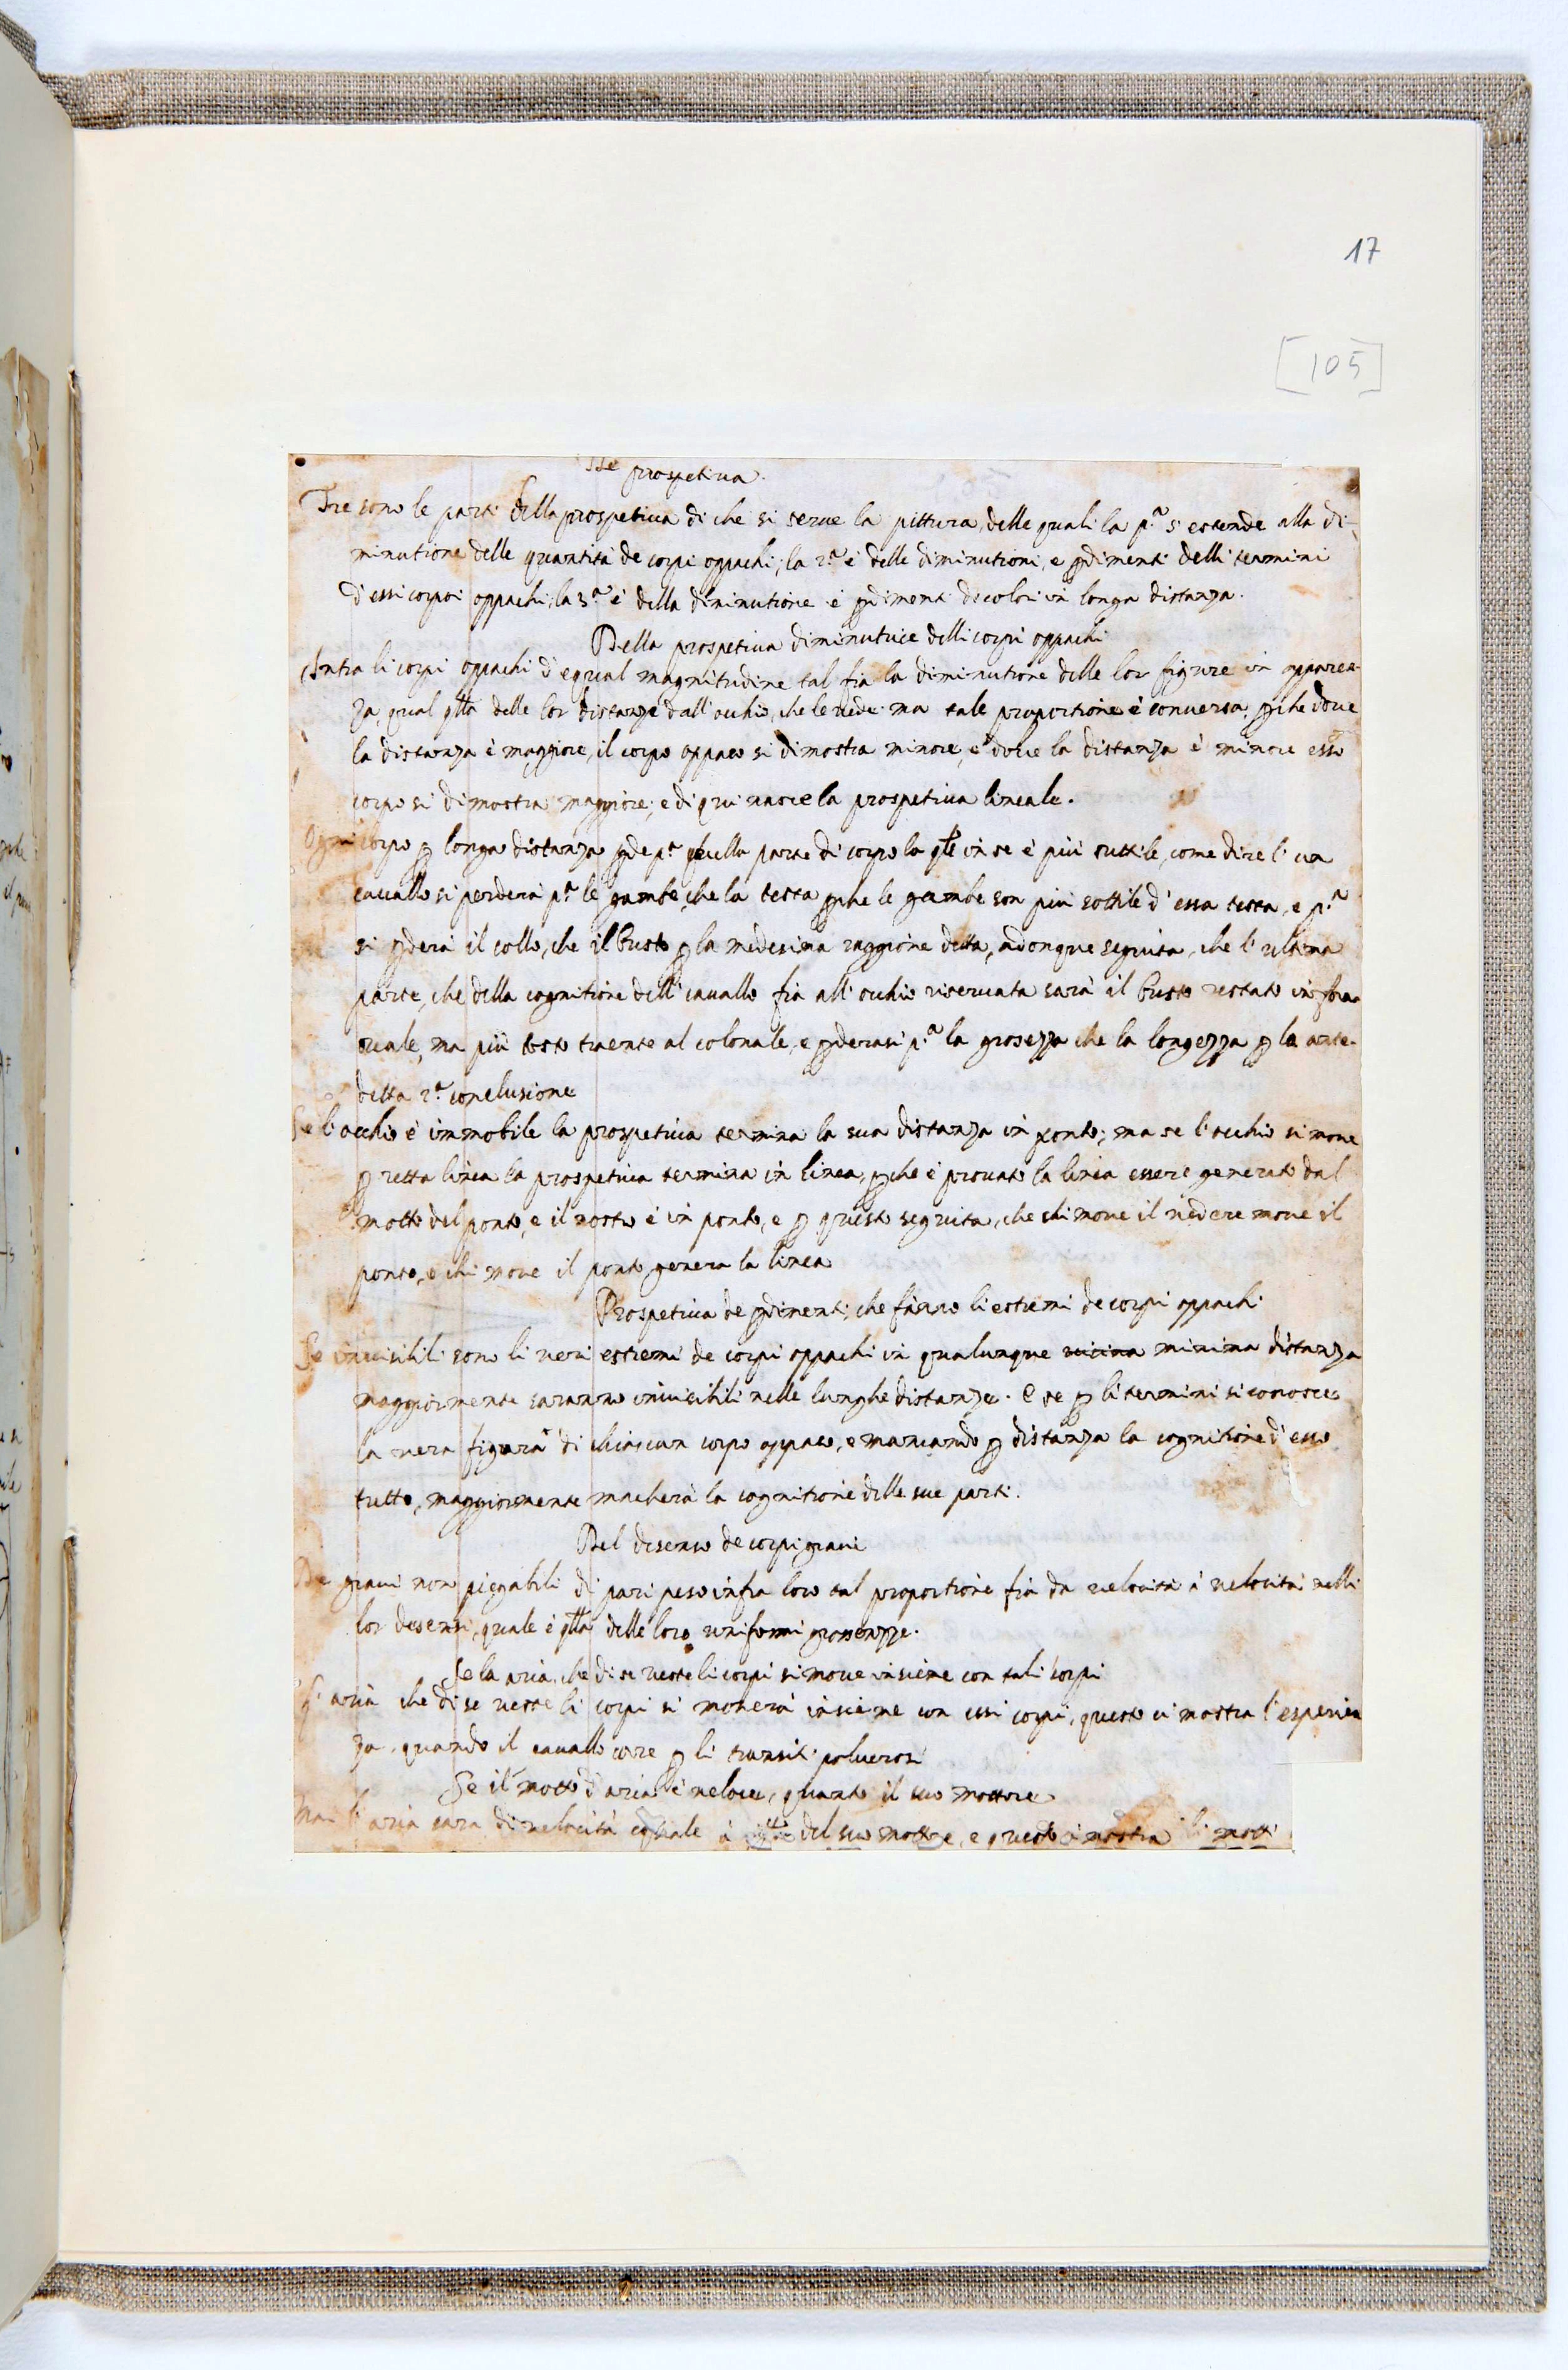 17
[105]
prospetiua.
Tre sono le parti della prospetiua di che si serue la pittura, delle quali la p.ª s'estende alla di-
minutione delle quantità de corpi oppachi, la 2.ª è delle diminutioni, e ꝑdimenti delli termini
d'essi corpi oppachi, la 3.ª è della diminutione e ꝑdimenti de colori in longa distanza.
Della prospetiua diminutiue delli corpi oppachi
Intra li corpi oppachi d'equal magnitudine tal fia la diminutione delle lor figure in apparen-
za qual qlla delle lor distanze dall'ochio, che le uede ma tale proportione è conuersa, ꝑche doue
la distanza è maggiore, il corpo oppaco si dimostra minore, e doue la distanza è minore esso
corpo si dimostra maggiore, e di qui nasce la prospetiua lineale.
Ogni corpo ꝑ longa distanza ꝑde p.ª quella parte di corpo la qle in se è più suttile, come dire l' un
cauallo si perderà p.ª le gambe, che la testa ꝑche le gambe son più sottile d'essa testa, e p.ª
si ꝑderà il collo, che il busto ꝑ la medesima raggione detta, adonque seguita, che l'ultima
parte, che della cognitione dell'cauallo fia all'ochio riseruata sarà il busto restato in forma
ouale, ma più tosto traente al colonale, e ꝑderasi p.ª la grosezza che la longezza ꝑ la ante-
detta 2.ª conclusione
Se l'occhio è immobile la prospetiua termina la sua distanza in ponto; ma se l'ochio si moue
ꝑ retta linea la prospetiua termina in linea, ꝑche è prouato la linea essere generato dal
motto del ponto, e il nostro è in ponto, e ꝑ questo seguita, che chi moue il uedere moue il
ponto, e chi moue il ponto genera la linea
Prospetiua de ꝑdimenti, che fanno li estremi de corpi oppachi
Se inuisibili sono li ueri estremi de corpi oppachi in qualunque uicina minima distanza
maggiormente saranno inuisibili nelle lunghe distanze. E se ꝑ li termini si conosce
la uera figura di chiascun corpo oppaco, e mancando ꝑ distanza la cognitione d'esso
tutto, maggiormente macherà la cognitione delle sue parti.
Del disenso de corpi graui
De graui non piegabili di pari peso infra loro tal proportione fia da uelocità à uelocità nelli
lor desensi, quale è qlla delle loro uniformi grossezze.
Se la aria, che di se ueste li corpi si moue insieme con tali corpi
L'aria che di se ueste li corpi si mouerà insieme con essi corpi, questo ci mostra l'esperien
za, quando il cauallo core ꝑ li transiti poluerosi
Se il motto d'aria è ueloce, quanto il suo mottore
Mai l'aria sara di uelocità equale à qlla del suo mottore, e questo ci mostra li motti